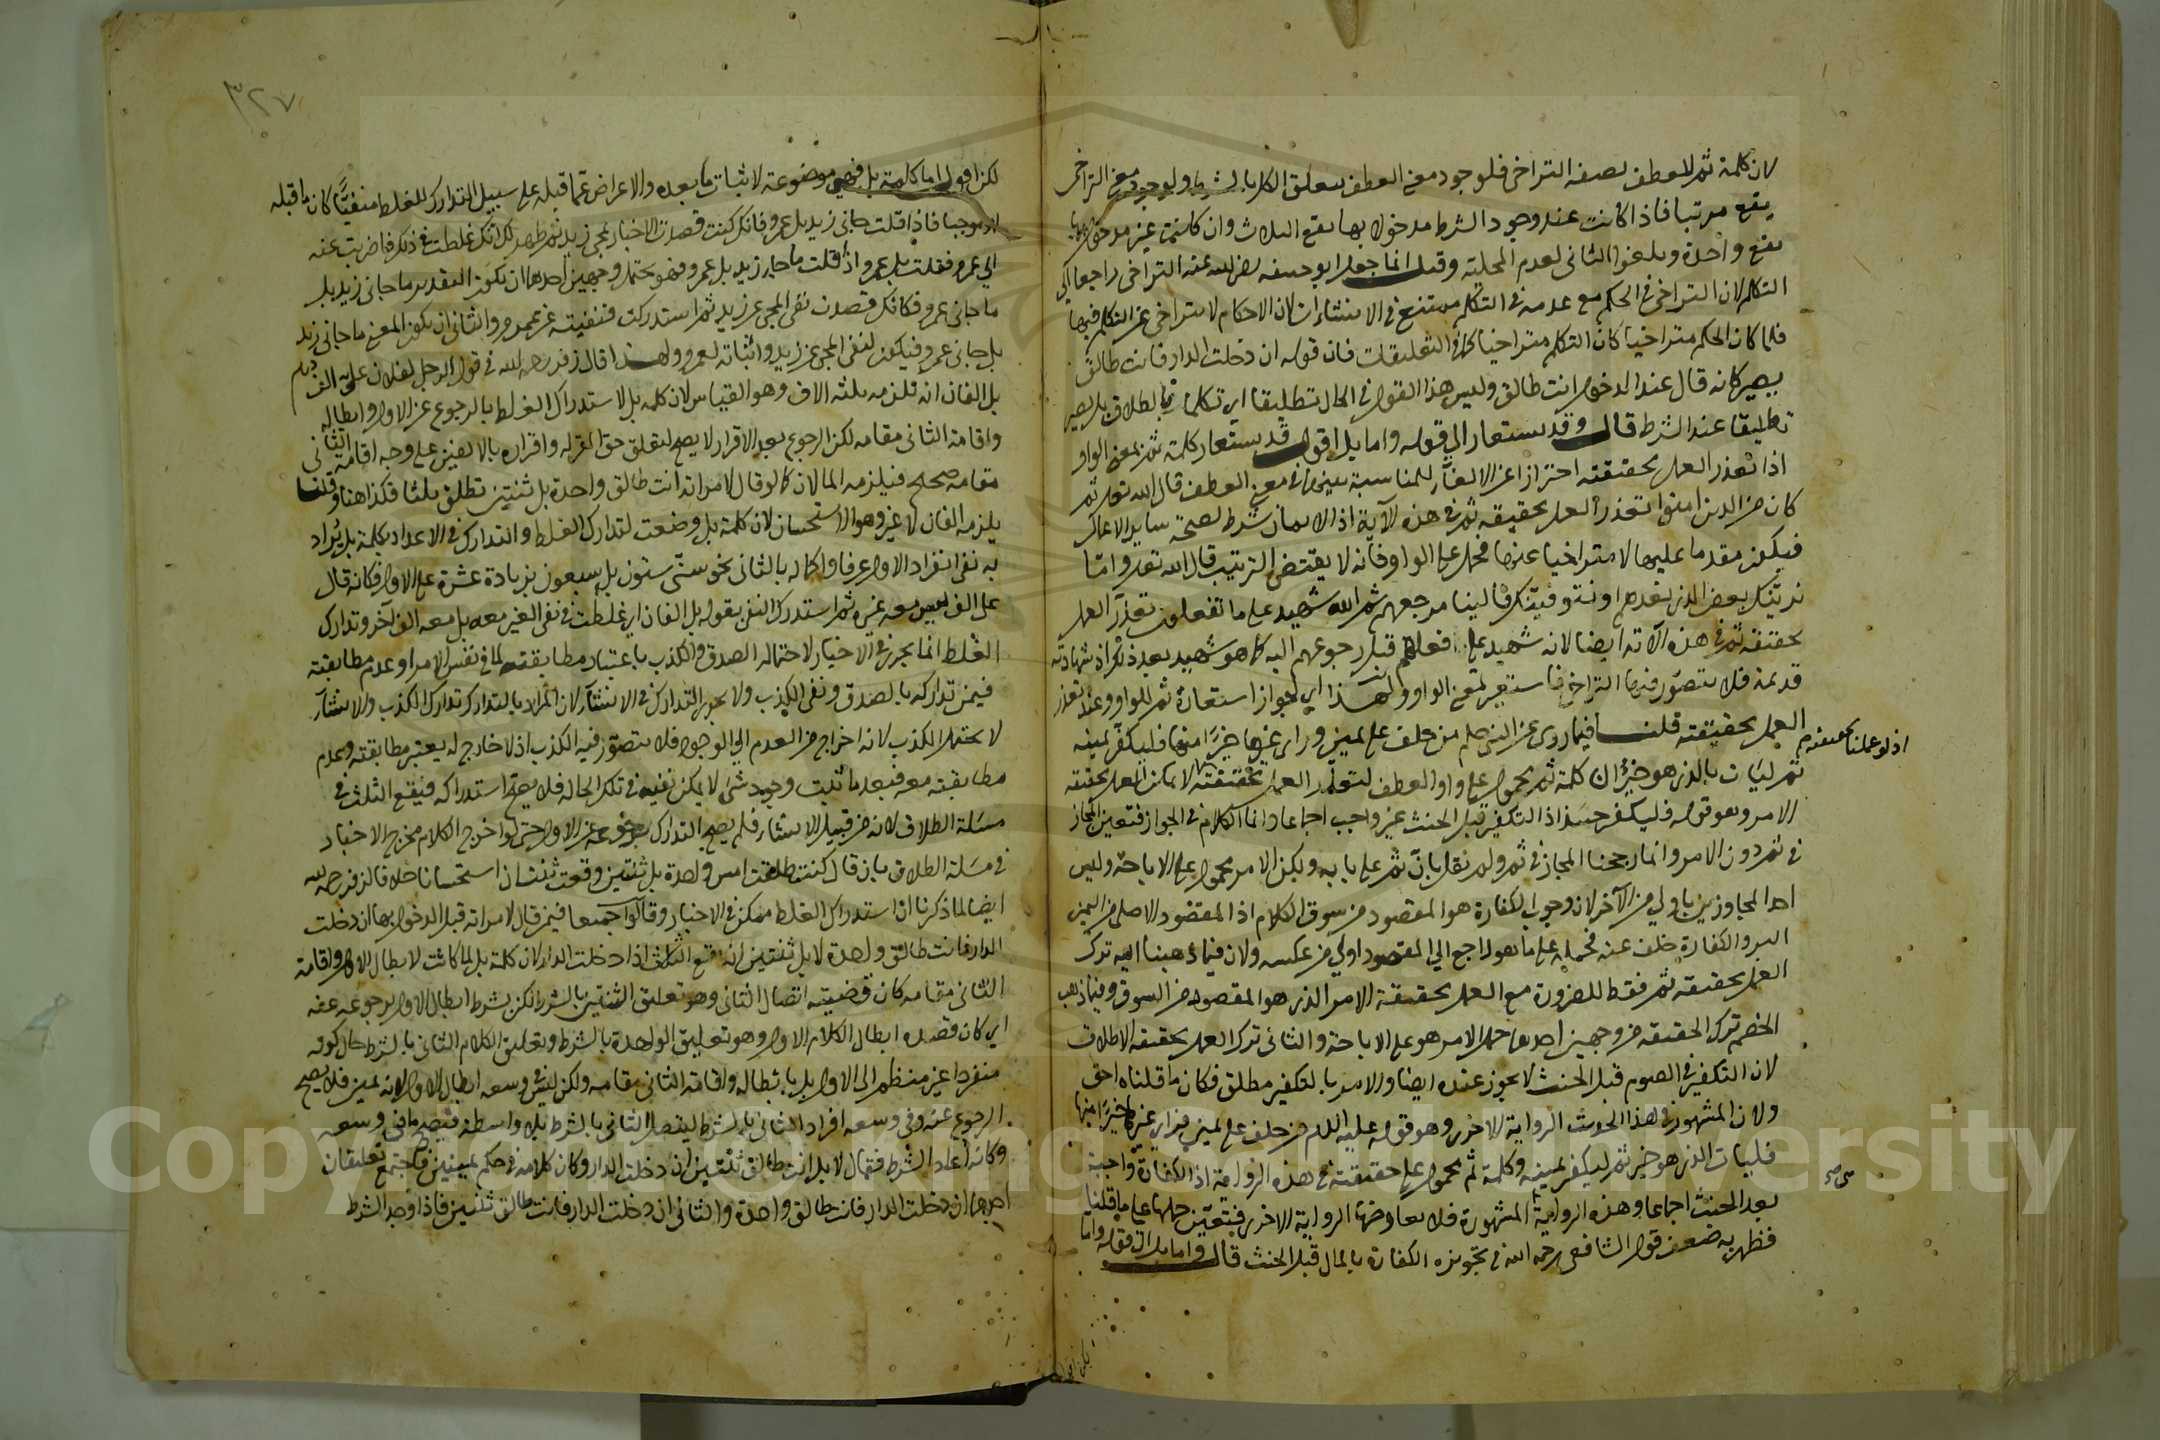 لان كلمة ثم للعطف بصفة التراخي فلوجود معنى العطف يتعلق الكل بالشرط ولوجود معنى التراخي
يقع مرتبا فاذا كانت عند وجود الشرط مدخولا بها يقع الثلاث وان كانت غير مدخول بها
يقع واحدة ويلغوا الثاني لعدم المحلية وقيل انما جعل ابو حنيفه رضي الله عنه التراخي راجعا الى
التكلم لان التراخي في الحكم مع عدمه في التكلم ممتنع في الانشاءات لان الاحكام لا تتراخى عن التكلم فيها
فلما كان الحكم متراخيا كان التكلم متراخيا كما في التعليقات فان قوله ان دخلت الدار فانت طالق
يصير كانه قال عند الدخول انت طالق وليس هذا القول في الحال تطليقا اي تكلما بالطلاق بل يصير
تطليقا عند الشرط قال وقد يستعار الى قوله واما بل اقول قد يستعار كلمة ثم بمعنى الواو
اذا تعذر العمل بحقيقته احترازا عن الالغاء للمناسبة بينهما في معنى العطف قال الله تعالى ثم
كان من الذين امنوا تعذر العمل بحقيقة ثم في هذه الآية اذ الايمان شرط لصحة ساير الاعمال
فيكون مقدما عليها لا متراخيا عنها فحمل على الواو فانه لا يقتضي الترتيب قال الله تعالى واما
نرينك بعض الذي نعدهم او نتوفينك فالينا مرجعهم ثم الله شهيد على ما تفعلون تعذر العمل
بحقيقة ثم في هذه الآية ايضا لانه شهيد على افعالهم قبل رجوعهم اليه كما هو شهيد بعد ذلك اذ شهادته
قديمة فلا يتصور فيها التراخي فاستعير بمعنى الواو ولهذا اي لجواز استعارة ثم للواو وعند تعذر
العمل بحقيقته قلنا فيما روي عن النبي صلم من حلف على يمين وراى غيرها خيرا منها فليكفر يمينه
اذ لو عملنا بحقيقة ثم
ثم ليات بالذي هو خير ان كلمة ثم محمول على واو العطف لتعذر العمل بحقيقته لا يمكن العمل بحقيقة
الامر وهو قوله فليكفر حينئذ اذ التكفير قبل الحنث غير واجب اجماعا وانما الكلام في الجواز فتعين المجاز
في ثم دون الامر وانما رجحنا المجاز في ثم ولم نقل بان ثم على بابه ويكون الامر محمول على الاباحة وليس
احد المجازين باولى من الآخر لان وجوب الكفارة هو المقصود من سوق الكلام اذ المقصود الاصلي من اليمين
البر والكفارة خلف عنه فحمله على ما هو راجع الى المقصود اولى من عكسه ولان فيما ذهبنا اليه ترك
العمل بحقيقة ثم فقط للضرورة مع العمل بحقيقة الامر الذي هو المقصود من السوق وفيما ذهب
الخصم ترك الحقيقة من وجهين احدهما حمل الامر هو على الاباحة والثاني ترك العمل بحقيقة الاطلاق
لان التكفير في الصوم قبل الحنث لا يجوز عنده ايضا والامر بالتكفير مطلق فكان ما قلناه احق
ولان المشهور في هذا الحديث الرواية الاخرى وهو قوله عليه السلام من حلف على يمين فراى غيرها خيرا منها
فليات الذي هو خير ثم ليكفر يمينه وكلمة ثم محمول على حقيقته في هذه الرواية اذ الكفارة واجبة
بعد الحنث اجماعا وهذه الرواية المشهورة فلا يعارضها الرواية الاخرى فيتعين حملها على ما قلنا
فظهر به ضعف قول الشافعي رحمه الله في تجويزه الكفارة بالمال قبل الحنث قال واما بل الى قوله واما
٣٢٧
لكن اقول اما كلمة بل فهي موضوعة لاثبات ما بعده والاعراض عما قبله على سبيل التدارك للغلط منفيا كان ما قبله
او موجبا فاذا قلت جاني زيد بل عمرو فانك كنت قصدت الاخبار بمجي زيد ثم ظهر لك انك غلطت في ذلك فاضربت عنه
الى عمرو فقلت بل عمرو اذا قلت ما جاني زيد بل عمرو فهو يحتمل وجهين احدهما ان يكون التقدير ما جاني زيد بل
ما جاني عمرو فكانك قصدت نفي المجي عن زيد ثم استدركت فنفيته عن عمرو والثاني ان يكون المعنى ما جاني زيد
بل جاني عمرو فيكون لنفي المجي عن زيد واثباته لعمرو ولهذا قال زفر رحمه الله في قول الرجل لفلان علي الف درهم
بل الفان انه تلزمه ثلثه الاف وهو القياس لان كلمه بل لاستدراك الغلط بالرجوع عن الاول وابطاله
واقامة الثاني مقامه لكن الرجوع بعد الاقرار لا يصح لتعلق حق المقر له واقراره بالالفين على وجه اقامة الثاني
مقامه صحيح فيلزمه المالان كما لو قال لامراته انت طالق واحدة بل ثنتين تطلق ثلثا فكذا هنا وقلنا
يلزمه الفان لا غير وهو الاستحسان لان كلمة بل وضعت لتدارك الغلط والتدارك في الاعداد بكلمة بل يراد
به نفي انفراد الاول عرفا واكماله بالثاني نحو سني ستون بل سبعون بزيادة عشرة على الاول فكانه قال
على الف ليس معه غيره ثم استدرك النفي بقوله بل الفان اي غلطت في نفي الغير معه بل معه الف آخر وتدارك
الغلط انما يجري في الاخبار لاحتماله الصدق والكذب باعتبار مطابقته لما في نفس الامر وعدم مطابقته
فيمن تداركه بالصدق ونفي الكذب ولا يجري التدارك في الانشآء لان المراد بالتدارك تدارك الكذب والانشاء
لا يحتمل الكذب لانه اخراج من العدم الى الوجود فلا يتصور فيه الكذب اذ لا خارج له يعتبر مطابقته وعدم
مطابقته معه فبعد ما ثبت وجود شئ لا يمكن نفيه في تلك الحالة فلا يصح استدراكه فيقع الثلث في
مسئلة الطلاق لانه من قبيل الانشاء فلم يصح التدارك برجوعه عن الاول حتى لو اخرج الكلام مخرج الاخبار
في مسئلة الطلاق بان قال كنت طلقت امس واحدة بل ثنتين وقعت ثنتان استحسانا خلافا لزفر رحمه الله
ايضا لما ذكرنا ان استدراك الغلط ممكن في الاخبار وقالوا جميعا فيمن قال لامراته قبل الدخول بها ان دخلت
الدار فانت طالق واحدة لا بل ثنتين انه يقع الثلث اذا دخلت الدار لان كلمة بل لما كانت لابطال الاول واقامة
الثاني مقامه كان قضيته اتصال الثاني وهو تعليق الثنتين بالشرط لكن بشرط ابطال الاول برجوعه عنه
اي كان قصده ابطال الكلام الاول وهو تعليق الواحدة بالشرط وتعليق الكلام الثاني بالشرط حال كونه
منفردا غير منظم الى الاول بل بابطاله واقامة الثاني مقامه ولكن ليس في وسعه ابطال الاول لانه يمين فلا يصح
الرجوع عنه وفي وسعه افراد الثاني بالشرط ليتصل الثاني بالشرط بلا واسطة فيصح ما في وسعه
وكانه اعاد الشرط فقال لا بل انت طالق ثنتين ان دخلت الدار وكان كلامه في حكم يمينين فيجتمع تعليقان
احدهما ان دخلت الدار فانت طالق واحدة والثاني ان دخلت الدار فانت طالق ثنتين فاذا وجد الشرط
Copyright © King Saud University